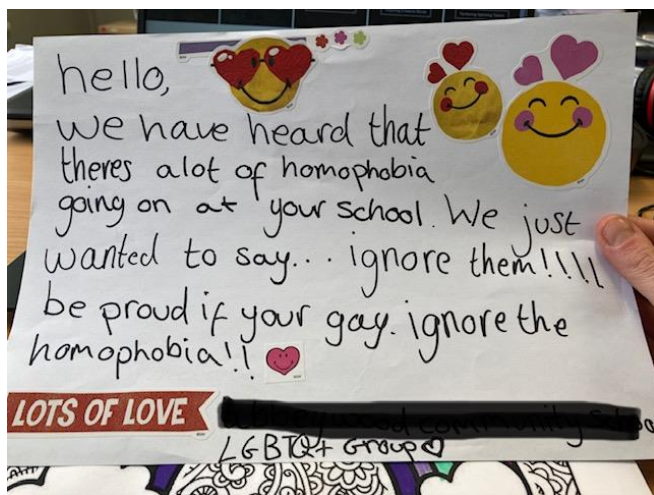 hello,
we have heard that
theres alot of homophobia
going on at your school. We just
wanted to say... ignore them!!!!
be proud if your gay. ignore the
homophobia!!
LOTS OF LOVE
LGBTQ+ Group